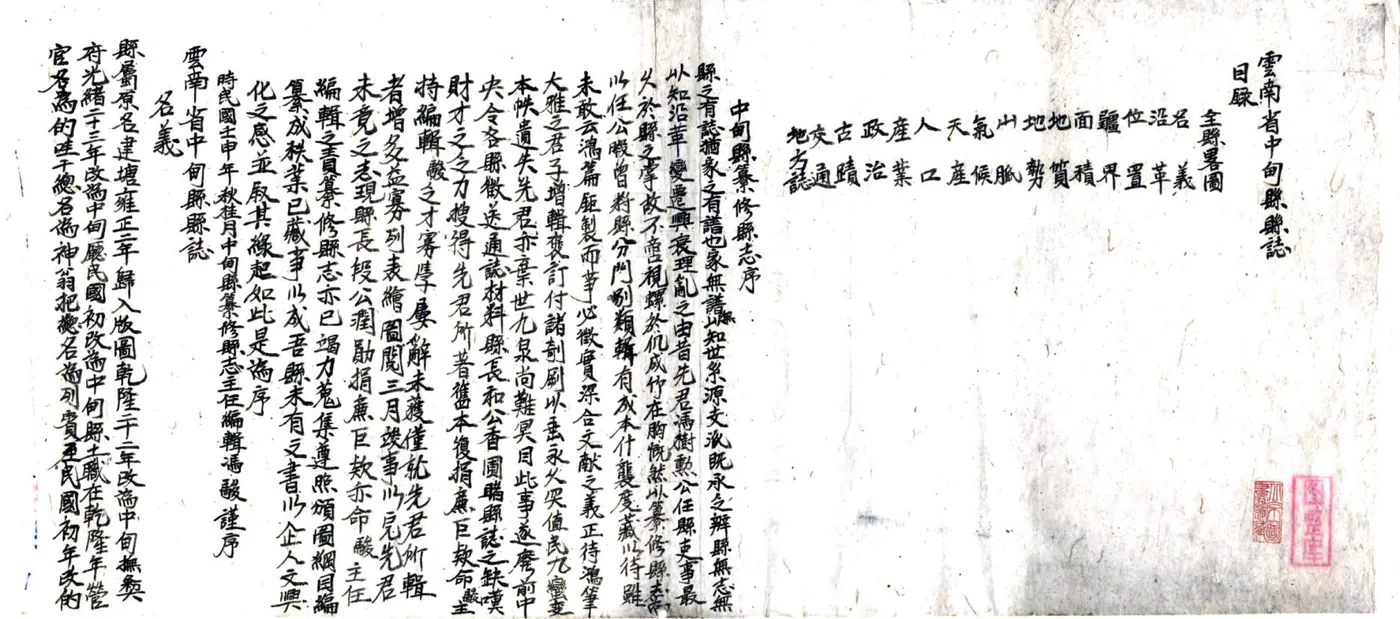 雲南省中甸縣縣誌
目録
全縣畧圖
名義
沿革
位置
疆界
面積
地質
地勢
山脈
氣候
天產
人口
産業
政治
古蹟
交通
地方誌
中甸縣纂修縣志序
縣之有誌猶家之有譜也家無譜無以知世系源支派既承之辨縣無志無
以知沿革變遷興衰理亂之由昔先君馮樹勲公任縣吏事最
久於縣之掌故不啻視螺於几成竹在胸慨然以纂修縣志
以任公暇曾將縣分門别類輯有成本什襲度藏以待雖
未敢云鴻篇鉅製而事必徵實深合文献之義正待鴻筆
大雅之君子增輯裒訂付諸剞劂以垂永久突值民九蠻
本帙遺失先君亦棄世九泉尚難冥目此事遂廢前中
央令各縣徵送通誌材料縣長和公香圃睹縣誌之缺嘆
財才之之力搜得先君所著舊本復捐廉巨欵命驄主
持編輯驄之才寡學屢辭未獲僅就先君所輯
者增多益寡列表繪圖閲三月竣事以見先君
未竟之志現縣長段公潤勛捐廉巨欵亦命驄主任
編輯之責纂修縣志亦已竭力蒐集遵照頒圖綱目編
纂成秩業已蕆事以成吾縣未有之書以企人文興
化之感並叙其緣起如此是爲序
時民國壬申年秋桂月中甸縣纂修縣志主任編輯馮驄謹序
雲南省中甸縣縣誌
名義
縣屬原名建塘雍正二年歸入版圖乾隆二十二年改爲中甸撫彝
府光緒二十三年改爲中甸廳民國初改爲中甸縣土職在乾隆年營
官名爲的哇千總名爲神翁把摠名爲列賓至民國初年改的